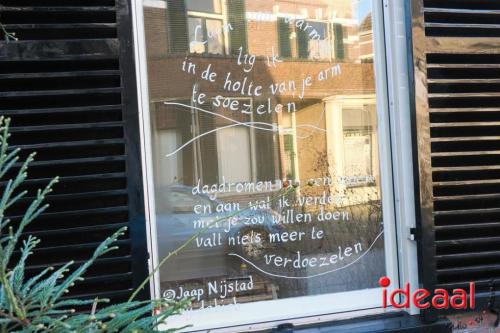 Lui en warm
lig ik
in de holte van je arm
te soezelen
dagdromen
en aan wat ik verder
met je zou willen doen
valt niets meer te
verdoezelen
©Jaap Nijstad
ideaal.